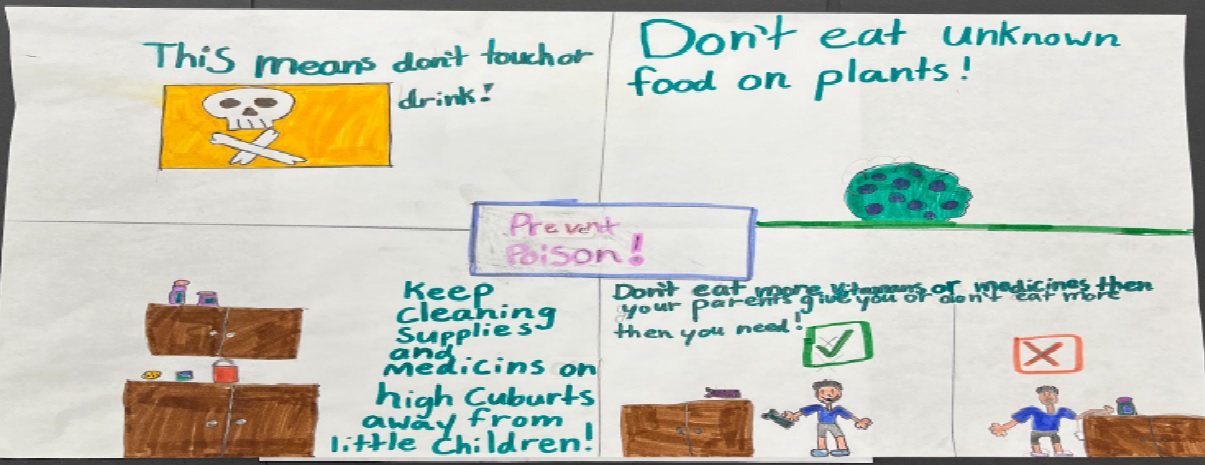 This means don't touch or
drink!
Don't eat unknown
food on plants!
Prevent
Poison!
Keep
Cleaning
Supplies
and
medicins on
high Cuburts
away from
little children!
Don't eat more vitamens or medicines then
your parents give you or don't eat more
then you need!